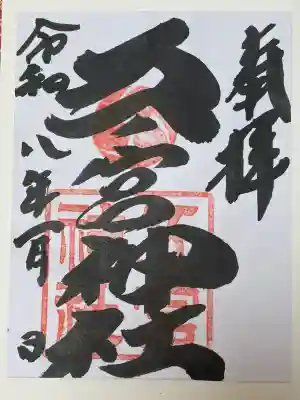 奉拝
宮神社
令和八年一月 日